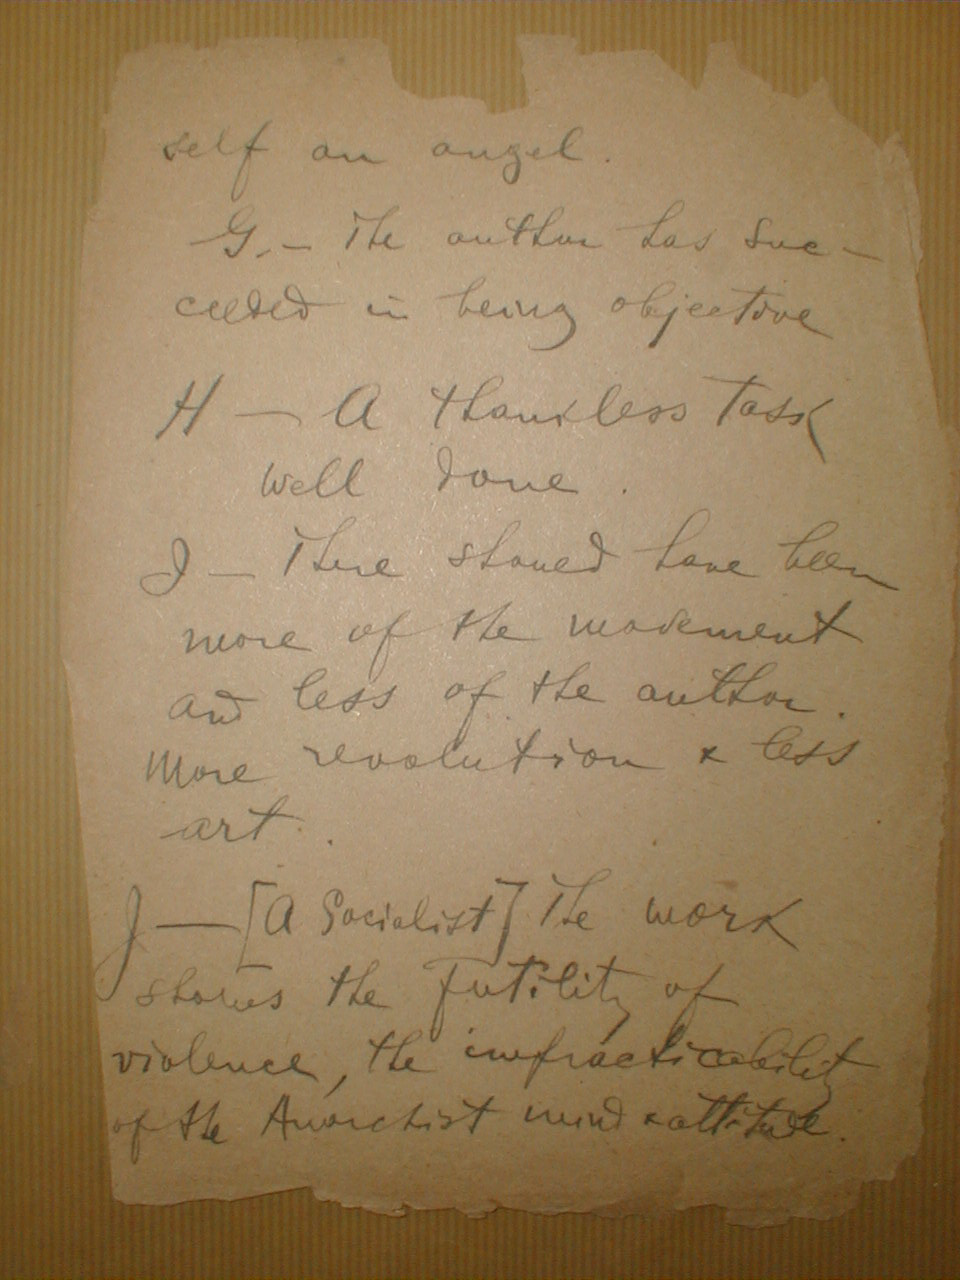 self an angel.
G. — The author has suc-
ceeded in being objective
H — A thankless task
well done.
I — There should have been
more of the movement
and less of the author.
More revolution & less
art.
J — [A Socialist] The work
shows the futility of
violence, the impracticability
of the Anarchist mind & attitude.